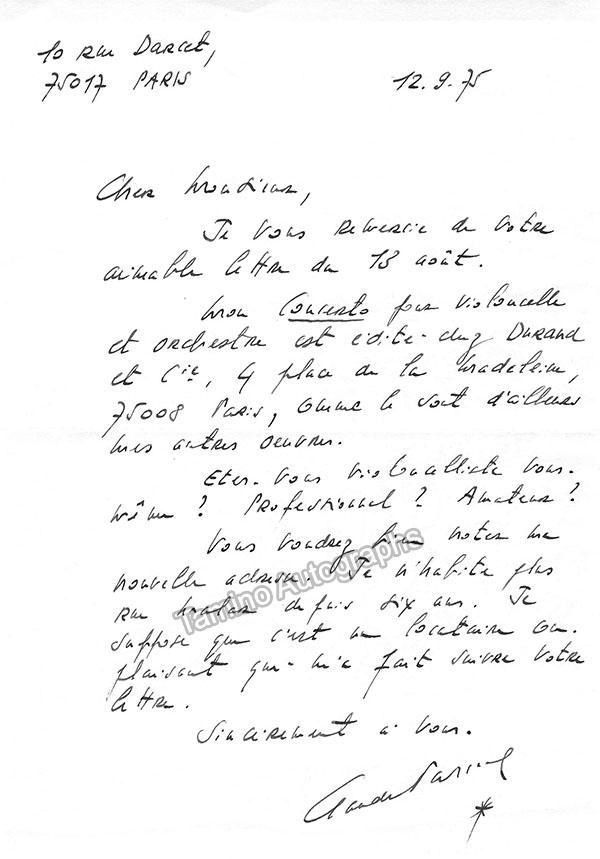 10 rue Darcet,
75017 PARIS
12.9.75
Cher Monsieur,
Je vous remercie de votre
aimable lettre du 13 août.
Mon Concerto pour violoncelle
et orchestre est édité chez Durand
et Cie, 4 place de la Madeleine,
75008 Paris, comme le sont d'ailleurs
mes autres oeuvres.
Etes-vous violoncelliste vous-
même ? Professionnel ? Amateur ?
Vous voudrez bien noter ma
nouvelle adresse. Je n'habite plus
rue depuis six ans. Je
suppose que c'est un locataire com-
plaisant qui m'a fait suivre votre
lettre.
Sincèrement à vous.
Claude Pascal
Tamino Autographs